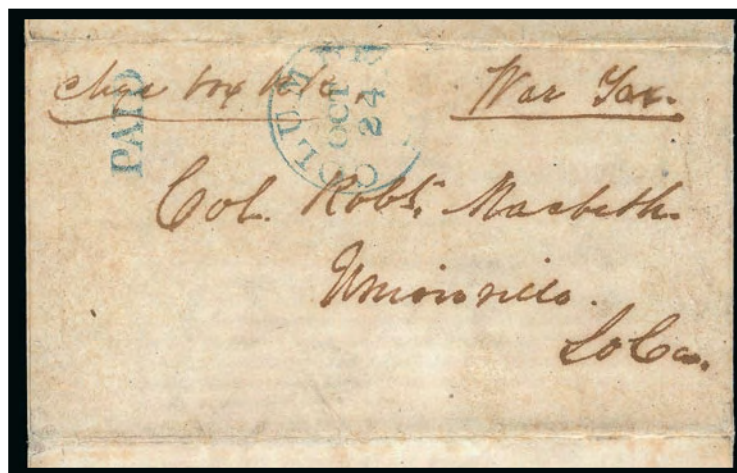 chge box War Tax.
PAID
COLUMBIA OCT 24
Col. Robt. Macbeth.
Unionville.
So Ca.